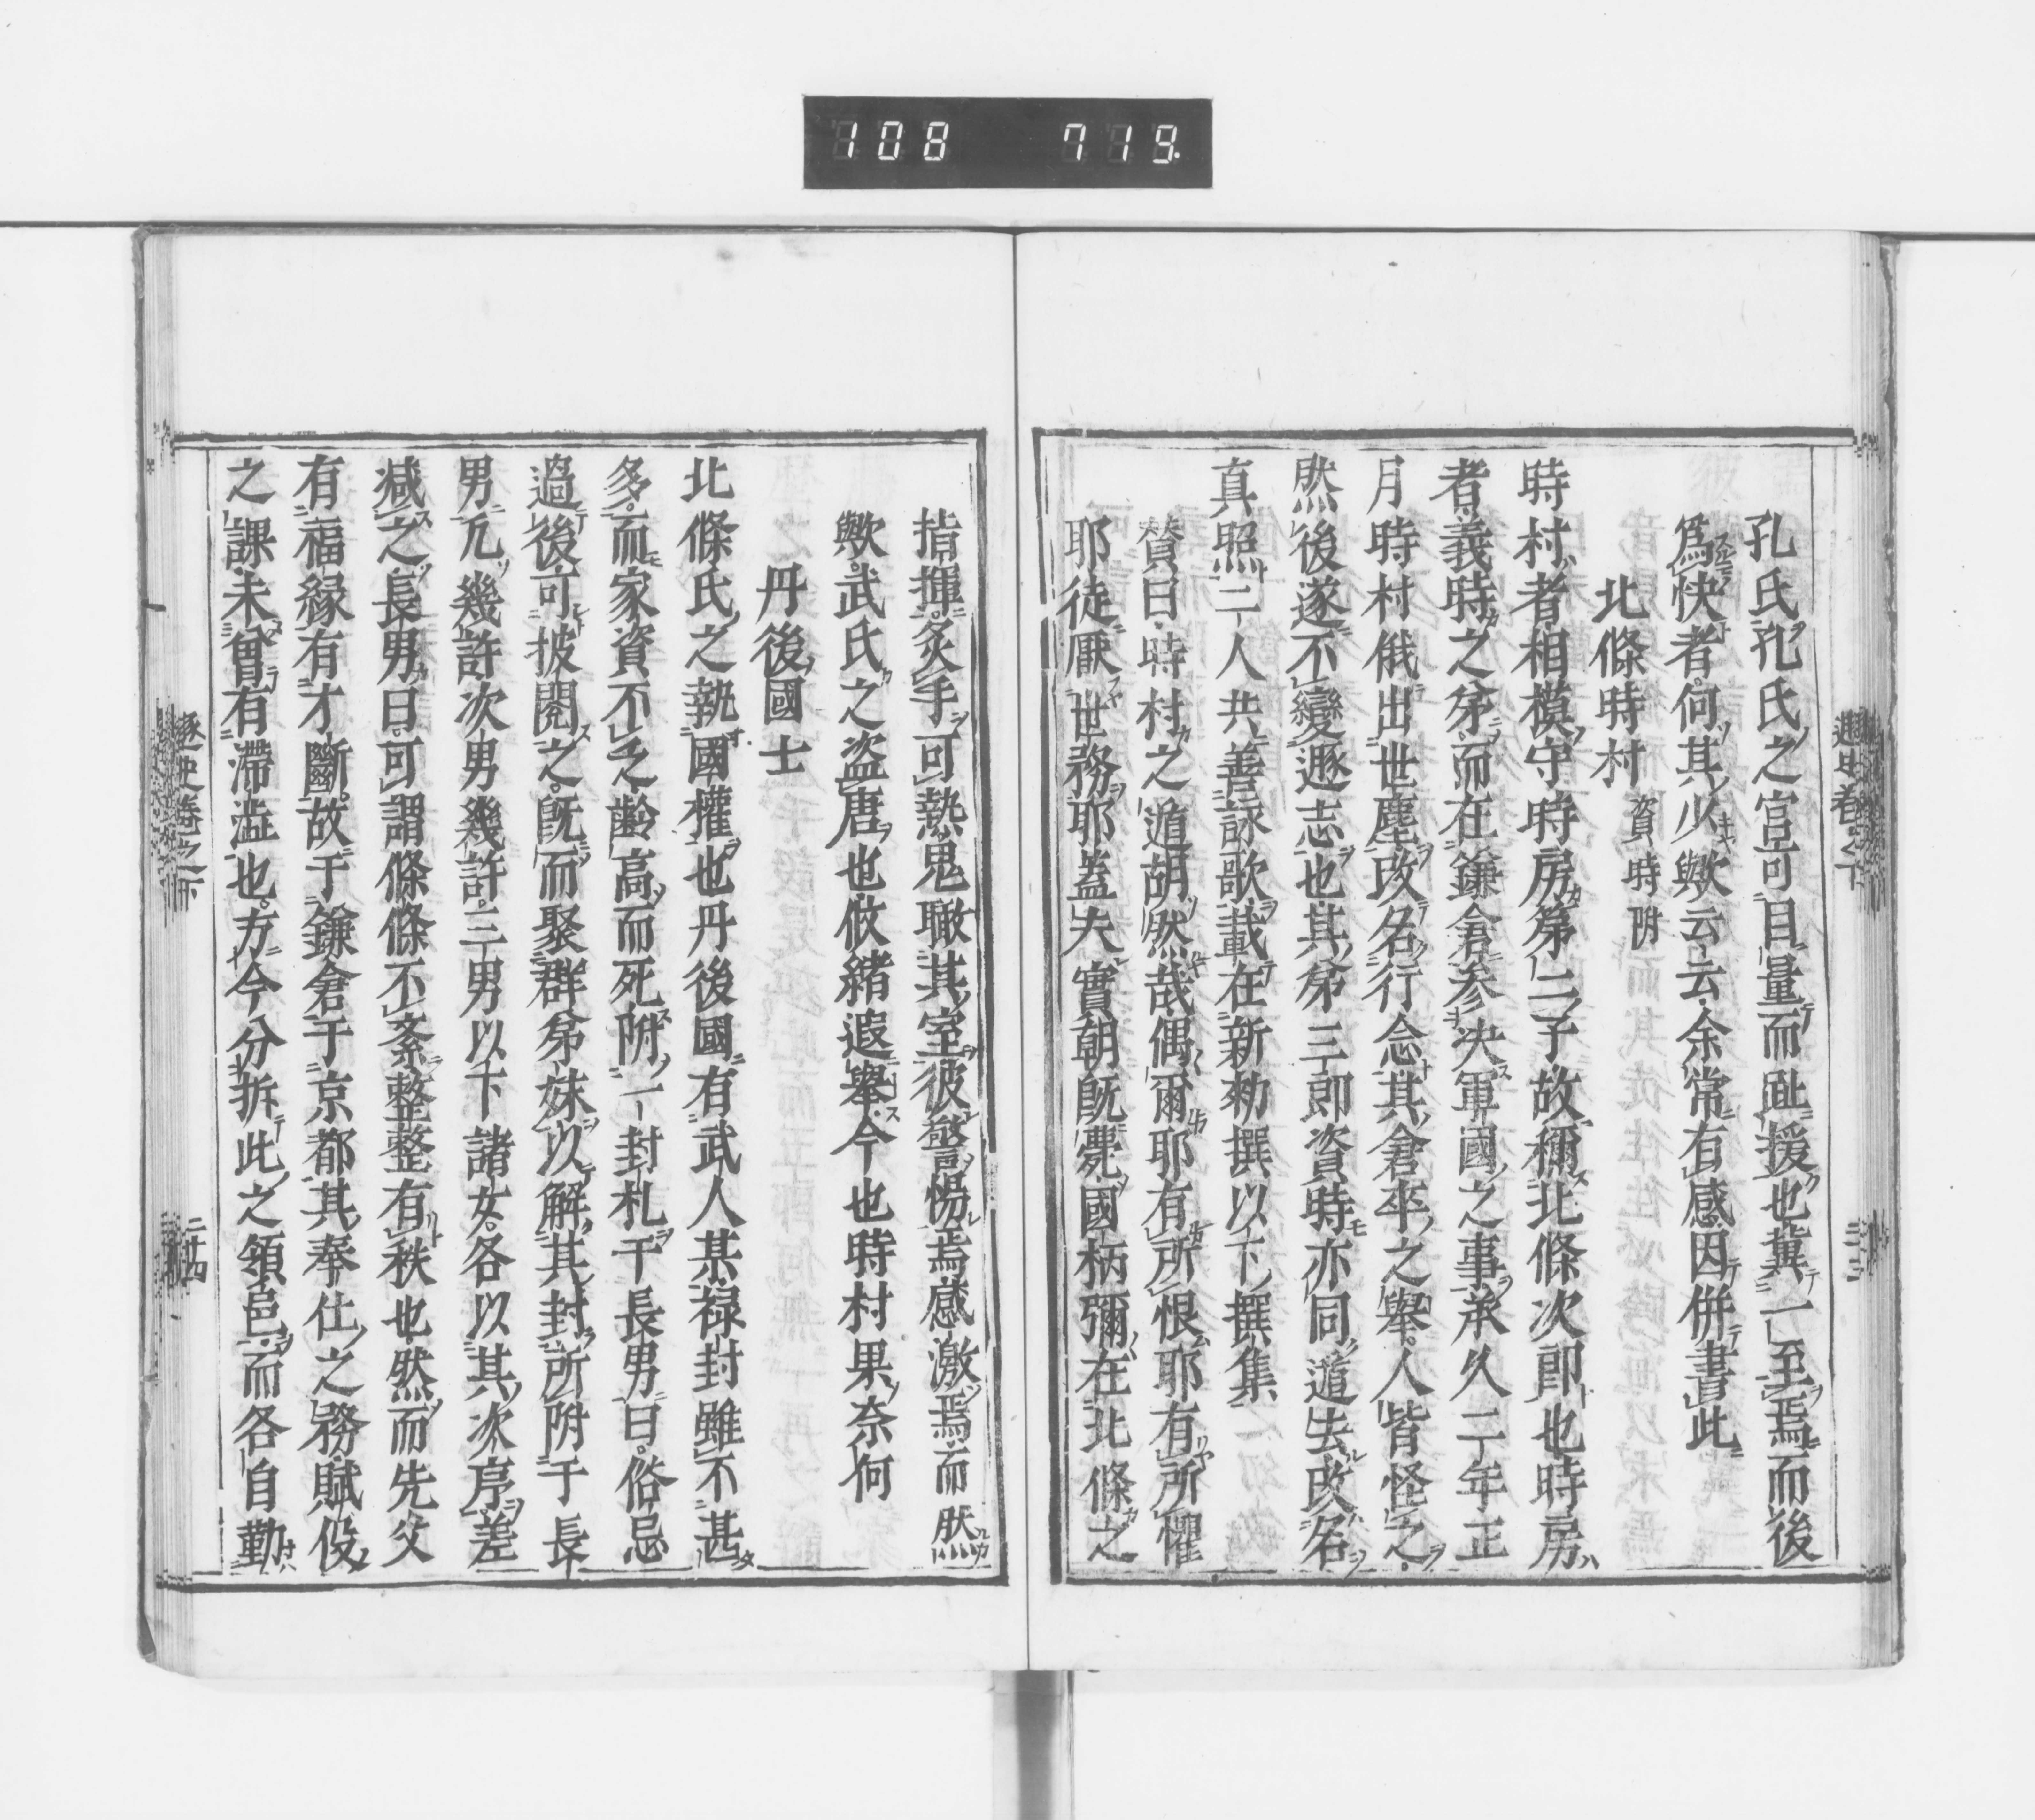 108 719
遯史卷之下
二十三
孔氏孔氏之官可目量而趾援也冀一至焉而後
爲快者何其少歟云云余常有感因併書此
北條時村 資時附
時村者相模守時房第二子故稱北條次郎也時房
者義時之弟而在鎌倉參決軍國之事承久二年正
月時村俄出世塵改名行念其倉卒之擧人皆怪之
然後遂不變遯志也其弟三郎資時亦同遁去改名
真照二人共善詠歌載在新勅撰以下撰集
贊曰時村之遁胡然哉偶爾耶有所恨耶有所懼
耶徒厭世務耶蓋夫實朝旣薨國柄彌在北條之
指揮炙手可熱鬼瞰其室彼警惕焉感激焉而然
歟武氏之盜唐也攸緒遐擧今也時村果奈何
丹後國士
北條氏之執國權也丹後國有武人某祿封雖不甚
多而家資不乏齡高而死附一封札于長男曰俗忌
過後可披閱之旣而聚群弟妹以解其封所附于長
男凡幾許次男幾許三男以下諸女各以其次序差
減之長男曰可謂條條不紊整整有秩也然而先父
有福緣有才斷故于鎌倉于京都其奉仕之務賦役
之課未曾有滯澁也方今分拆此之領邑而各自勤
遯史卷之下
二十四